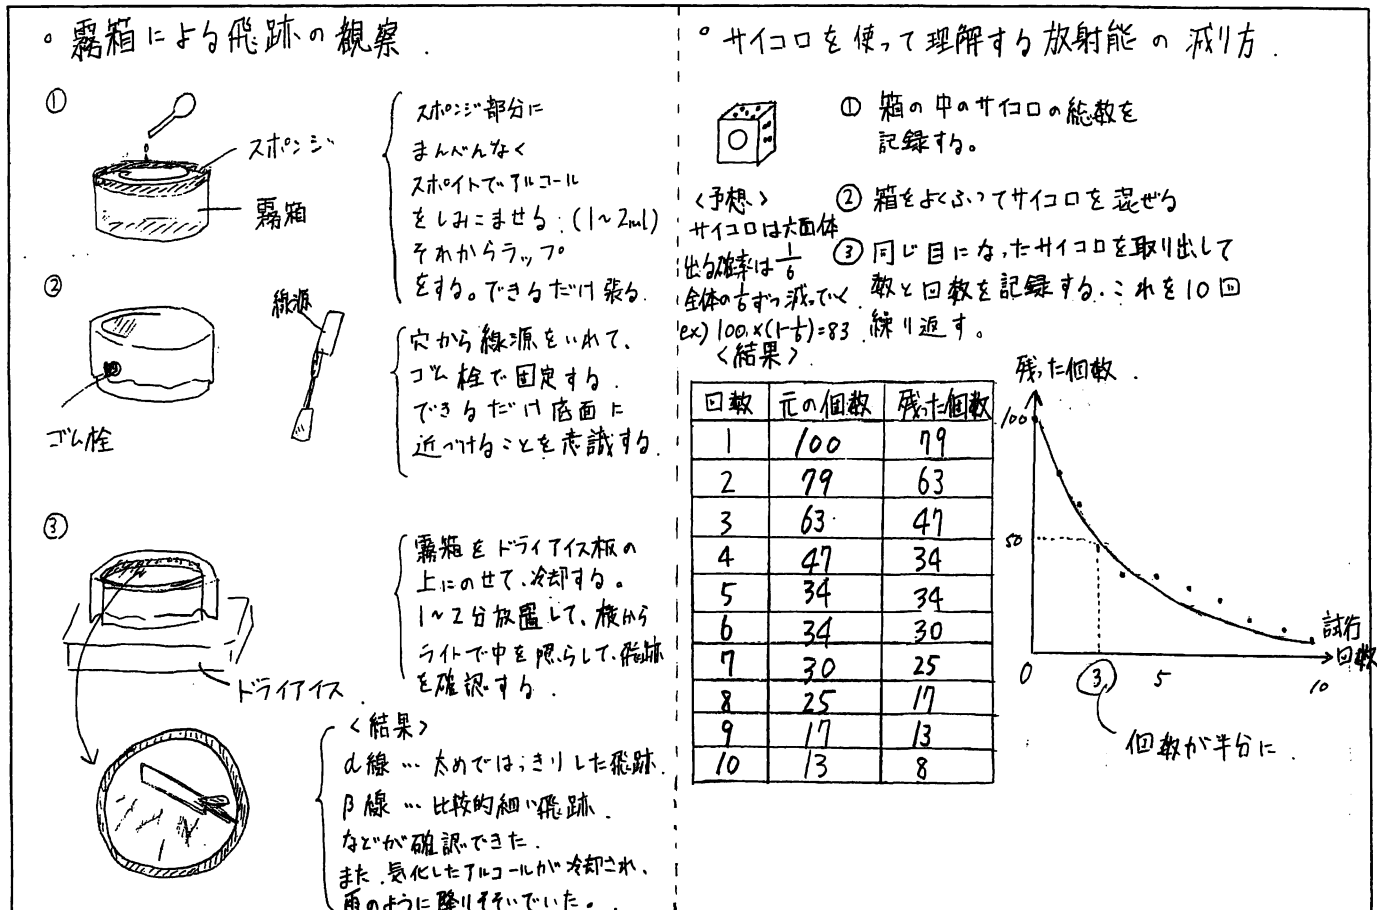 。霧箱による飛跡の観察.
①
スポンジ
霧箱
スポンジ部分に
まんべんなく
スポイトでアルコール
をしみこませる.(1~2ml)
それからラップ
をする。できるだけ張る.
②
線源
ゴム栓
穴から線源をいれて、
ゴム栓で固定する.
できるだけ底面に
近づけることを意識する.
③
ドライアイス.
霧箱をドライアイス板の
上にのせて、冷却する。
1~2分放置して、横から
ライトで中を照らして、飛跡
を確認する.
〈結果〉
α線…太めではっきりした飛跡.
β線…比較的細い飛跡.
などが確認できた.
また、気化したアルコールが冷却され、
雨のように降りそそいでいた。
。サイコロを使って理解する放射能の減り方.
① 箱の中のサイコロの総数を
記録する。
② 箱をよくふってサイコロを混ぜる
③ 同じ目になったサイコロを取り出して
数と回数を記録する.これを10回
繰り返す。
〈予想〉
サイコロは六面体
出る確率は1/6
全体の1/6ずつ減っていく
ex) 100×(1-1/6)=83
〈結果〉
回数 元の個数 残った個数
1 100 79
2 79 63
3 63 47
4 47 34
5 34 34
6 34 30
7 30 25
8 25 17
9 17 13
10 13 8
残った個数.
100
50
0 3 5 10
試行
回数
個数が半分に.